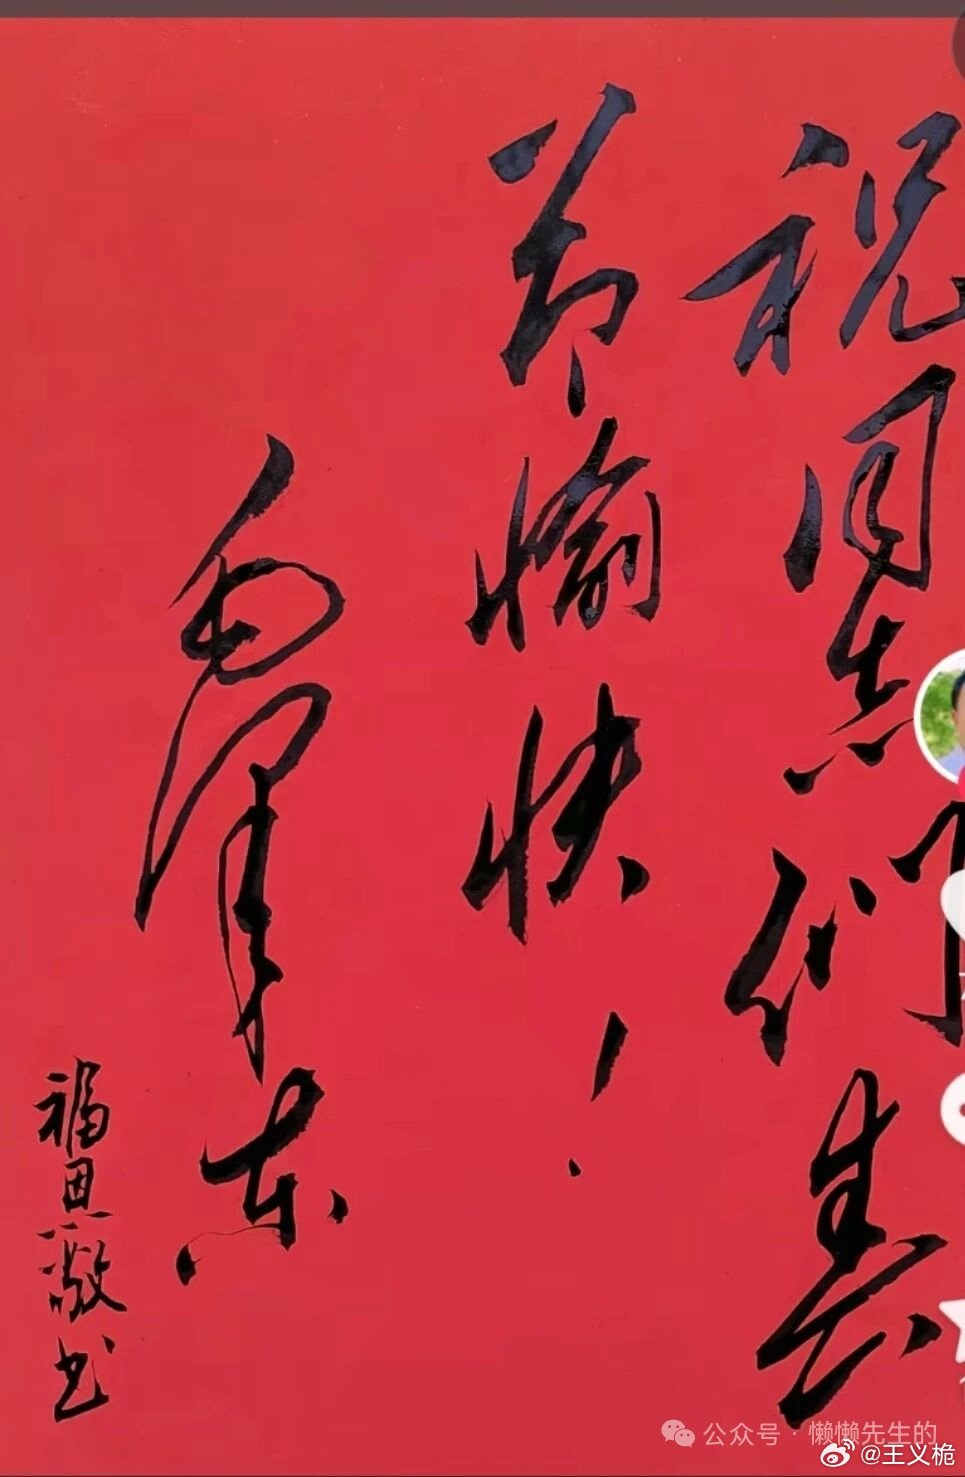 祝同志们春
节愉快！
毛泽东
福恩敬书
公众号·懒懒先生的
@王义桅